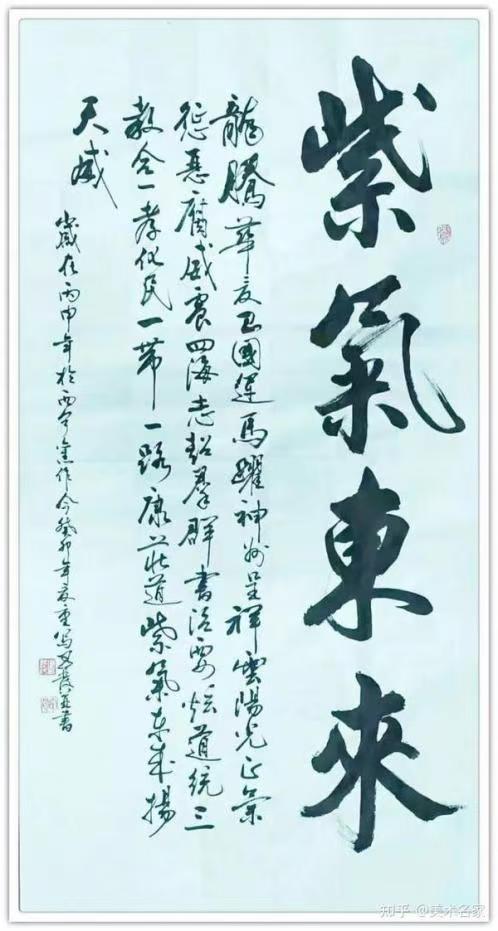 紫氣東來
龍騰華夏正國運馬躍神州呈祥雲陽光正氣
懲惡腐威震四海志超群群書治要炫道統三
教合一孝化民一帶一路康莊道紫氣東來揚
天威
歲在丙申年於西 作今癸卯年夏重寫 書
知乎 @美术名家